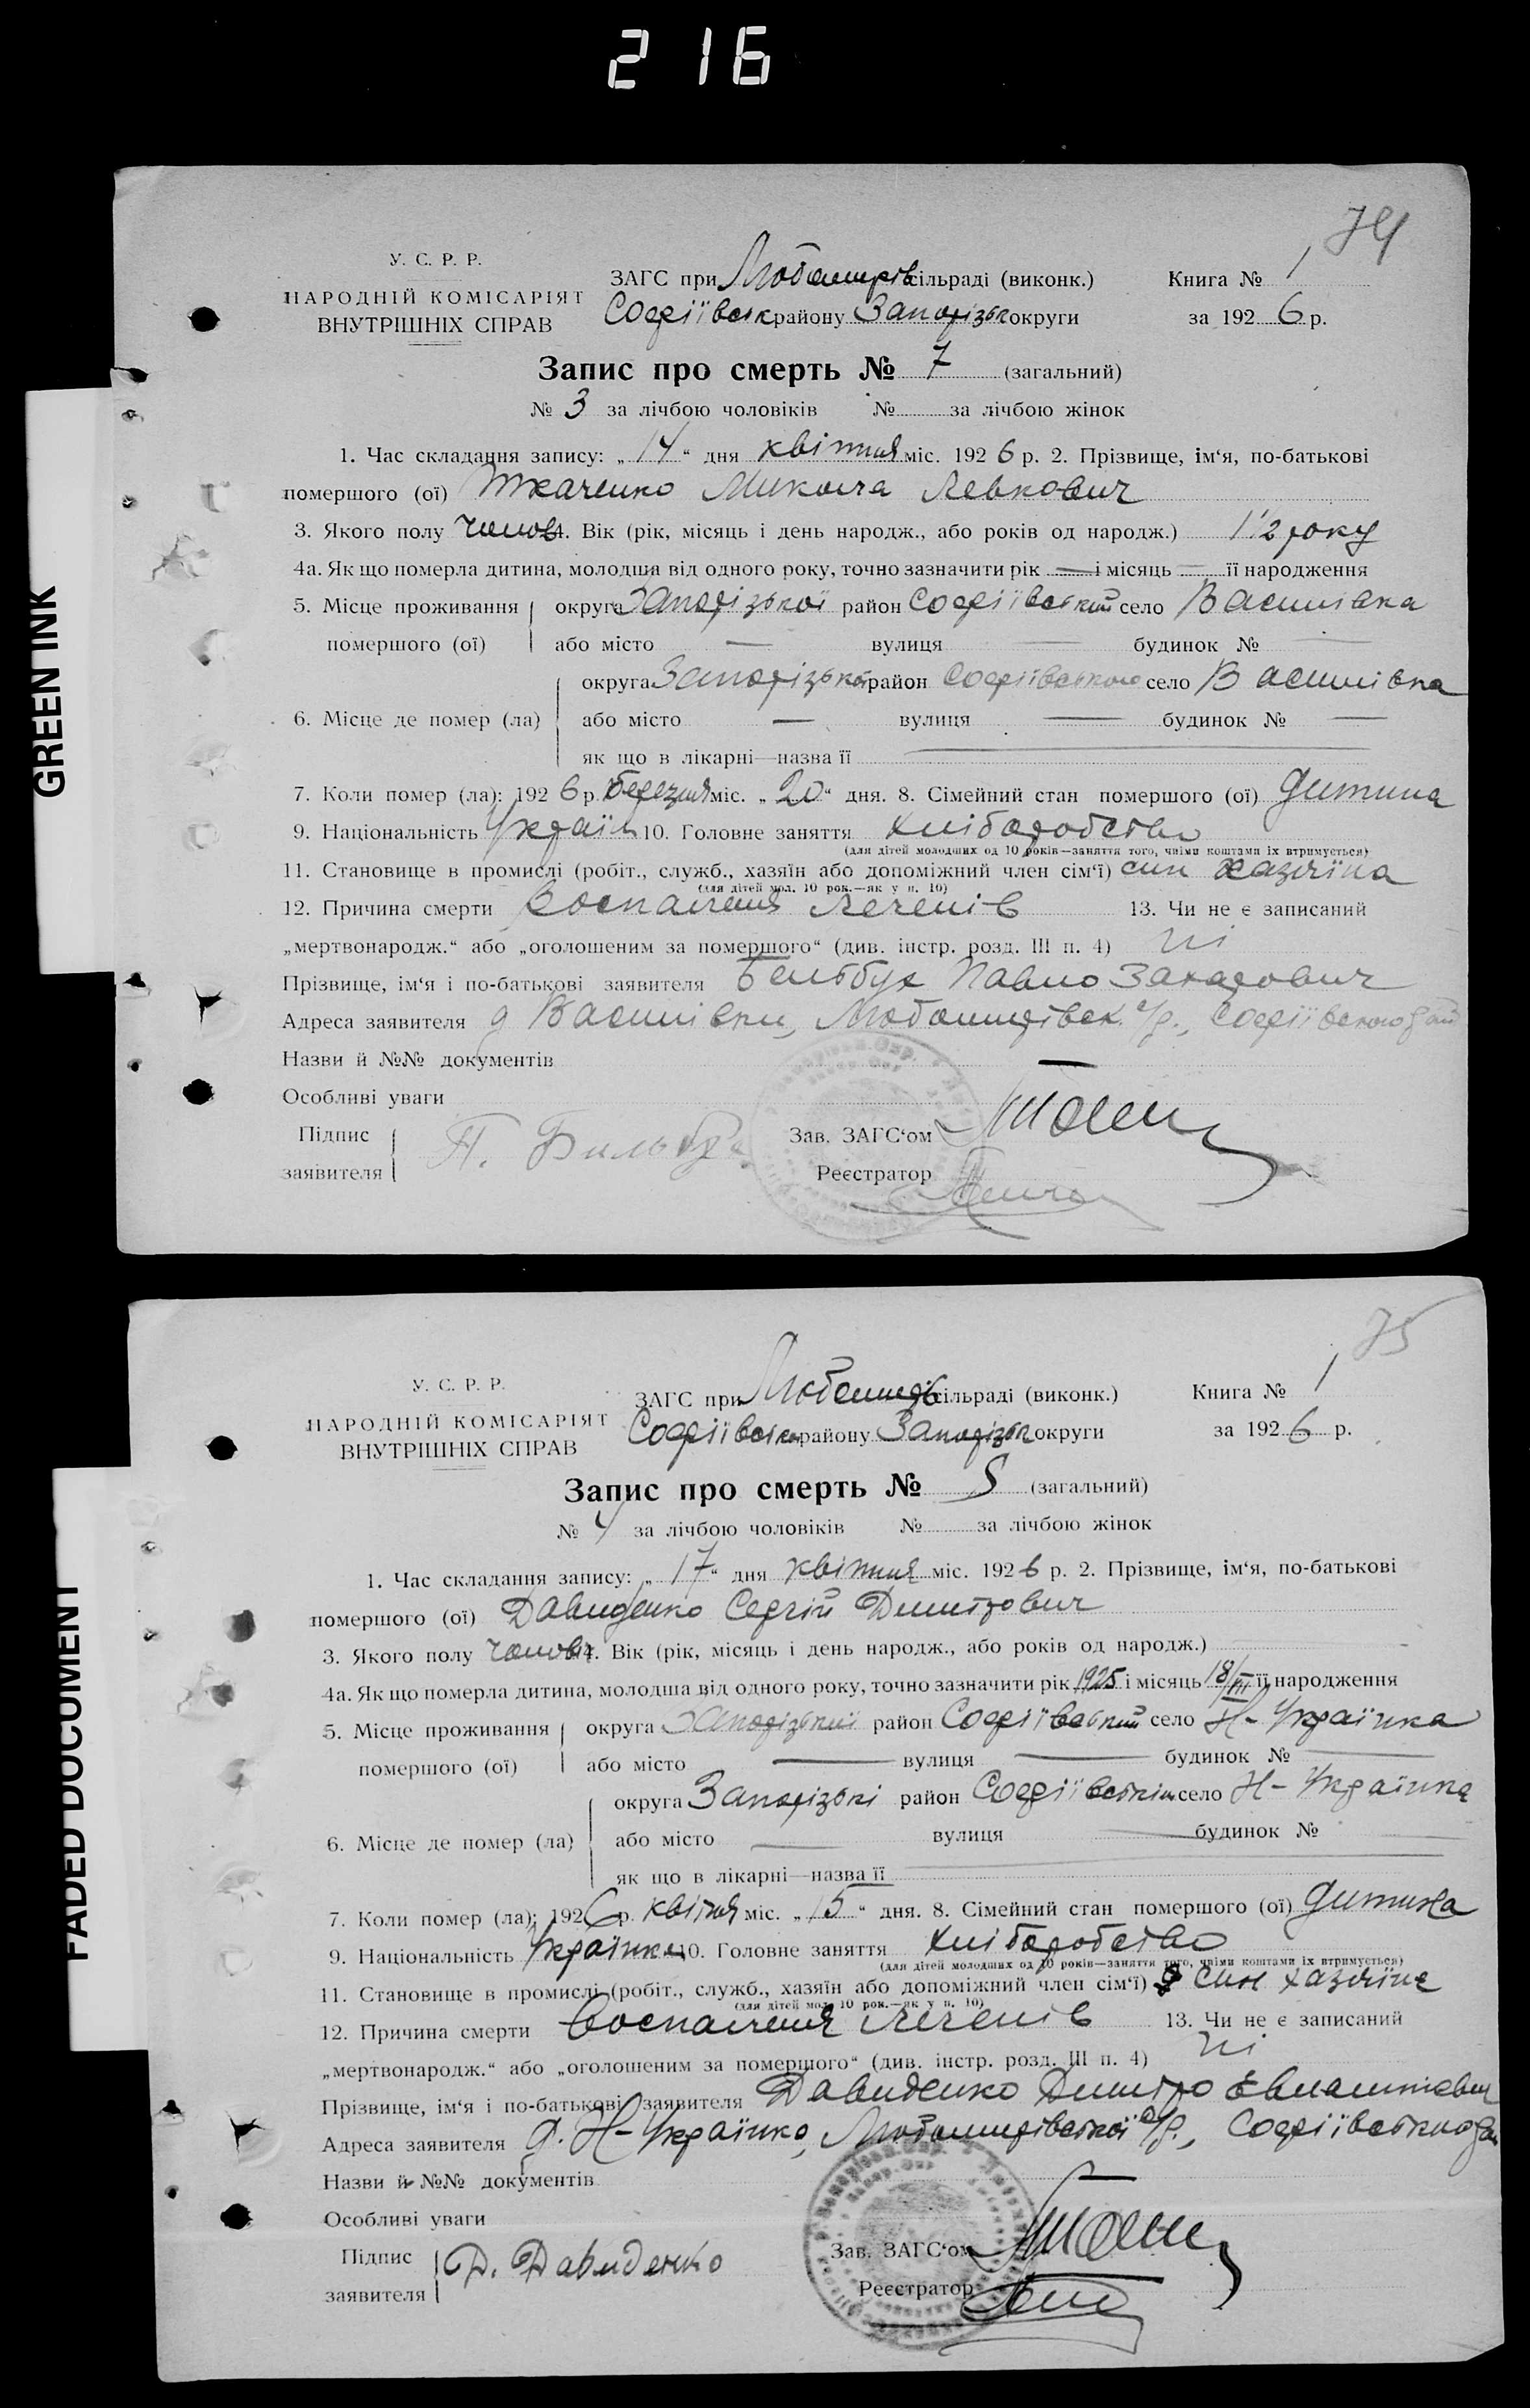 216
74
У. С. Р. Р.
НАРОДНІЙ КОМІСАРІЯТ
ВНУТРІШНІХ СПРАВ
ЗАГС при Любомирів сільраді (виконк.)
Софіївськ району Запорізьк округи
Книга № 1
за 1926 р.
Запис про смерть № 7 (загальний)
№ 3 за лічбою чоловіків № за лічбою жінок
1. Час складання запису: „14“ дня квітня міс. 1926 р. 2. Прізвище, ім‘я, по-батькові
помершого (ої) Ткаченко Микола Левкович
3. Якого полу чолов. Вік (рік, місяць і день народж., або років од народж.) 1 1/2 року
4а. Як що померла дитина, молодша від одного року, точно зазначити рік — і місяць — її народження
5. Місце проживання округа Запорізької район Софіївський село Василівка
помершого (ої) або місто — вулиця — будинок № —
округа Запорізької район Софіївського село Василівка
6. Місце де помер (ла) або місто — вулиця — будинок № —
як що в лікарні—назва її
7. Коли помер (ла): 1926 р. березня міс. „20“ дня. 8. Сімейний стан помершого (ої) дитина
9. Національність Україн 10. Головне заняття хліборобство
(для дітей молодших од 10 років—заняття того, чиїми коштами їх втримується)
11. Становище в промислі (робіт., служб., хазяїн або допоміжний член сім‘ї) син хазяїна
(для дітей мол. 10 рок.—як у п. 10)
12. Причина смерти воспалення легенів 13. Чи не є записаний
„мертвонародж.“ або „оголошеним за помершого“ (див. інстр. розд. III п. 4) ні
Прізвище, ім‘я і по-батькові заявителя Павло Захарович
Адреса заявителя д Василівки, Любомирівськ. с/р., Софіївського рай
Назви й №№ документів —
Особливі уваги
Підпис
заявителя
П.
Зав. ЗАГС‘ом
Реєстратор
GREEN INK
75
У. С. Р. Р.
НАРОДНІЙ КОМІСАРІЯТ
ВНУТРІШНІХ СПРАВ
ЗАГС при Любомирів сільраді (виконк.)
Софіївськ району Запорізьк округи
Книга № 1
за 1926 р.
Запис про смерть № (загальний)
№ 4 за лічбою чоловіків № за лічбою жінок
1. Час складання запису: „17“ дня квітня міс. 1926 р. 2. Прізвище, ім‘я, по-батькові
помершого (ої) Давиденко Сергій Дмитрович
3. Якого полу чолов. Вік (рік, місяць і день народж., або років од народж.)
4а. Як що померла дитина, молодша від одного року, точно зазначити рік 1925 і місяць 18/III її народження
5. Місце проживання округа Запорізької район Софіївський село Н-Українка
помершого (ої) або місто — вулиця — будинок № —
округа Запорізькі район Софіївський село Н-Українка
6. Місце де помер (ла) або місто — вулиця — будинок №
як що в лікарні—назва її
7. Коли помер (ла): 1926 р. квітня міс. „15“ дня. 8. Сімейний стан помершого (ої) дитина
9. Національність Українка 10. Головне заняття хліборобство
(для дітей молодших од 10 років—заняття того, чиїми коштами їх втримується)
11. Становище в промислі (робіт., служб., хазяїн або допоміжний член сім‘ї) син хазяїна
(для дітей мол. 10 рок.—як у п. 10)
12. Причина смерти воспалення легенів 13. Чи не є записаний
„мертвонародж.“ або „оголошеним за помершого“ (див. інстр. розд. III п. 4) ні
Прізвище, ім‘я і по-батькові заявителя Давиденко Дмитро
Адреса заявителя д. Н-Українка, Любомирівської с/р., Софіївського рай
Назви й №№ документів —
Особливі уваги
Підпис
заявителя
Д. Давиденко
Зав. ЗАГС‘ом
Реєстратор
FADED DOCUMENT